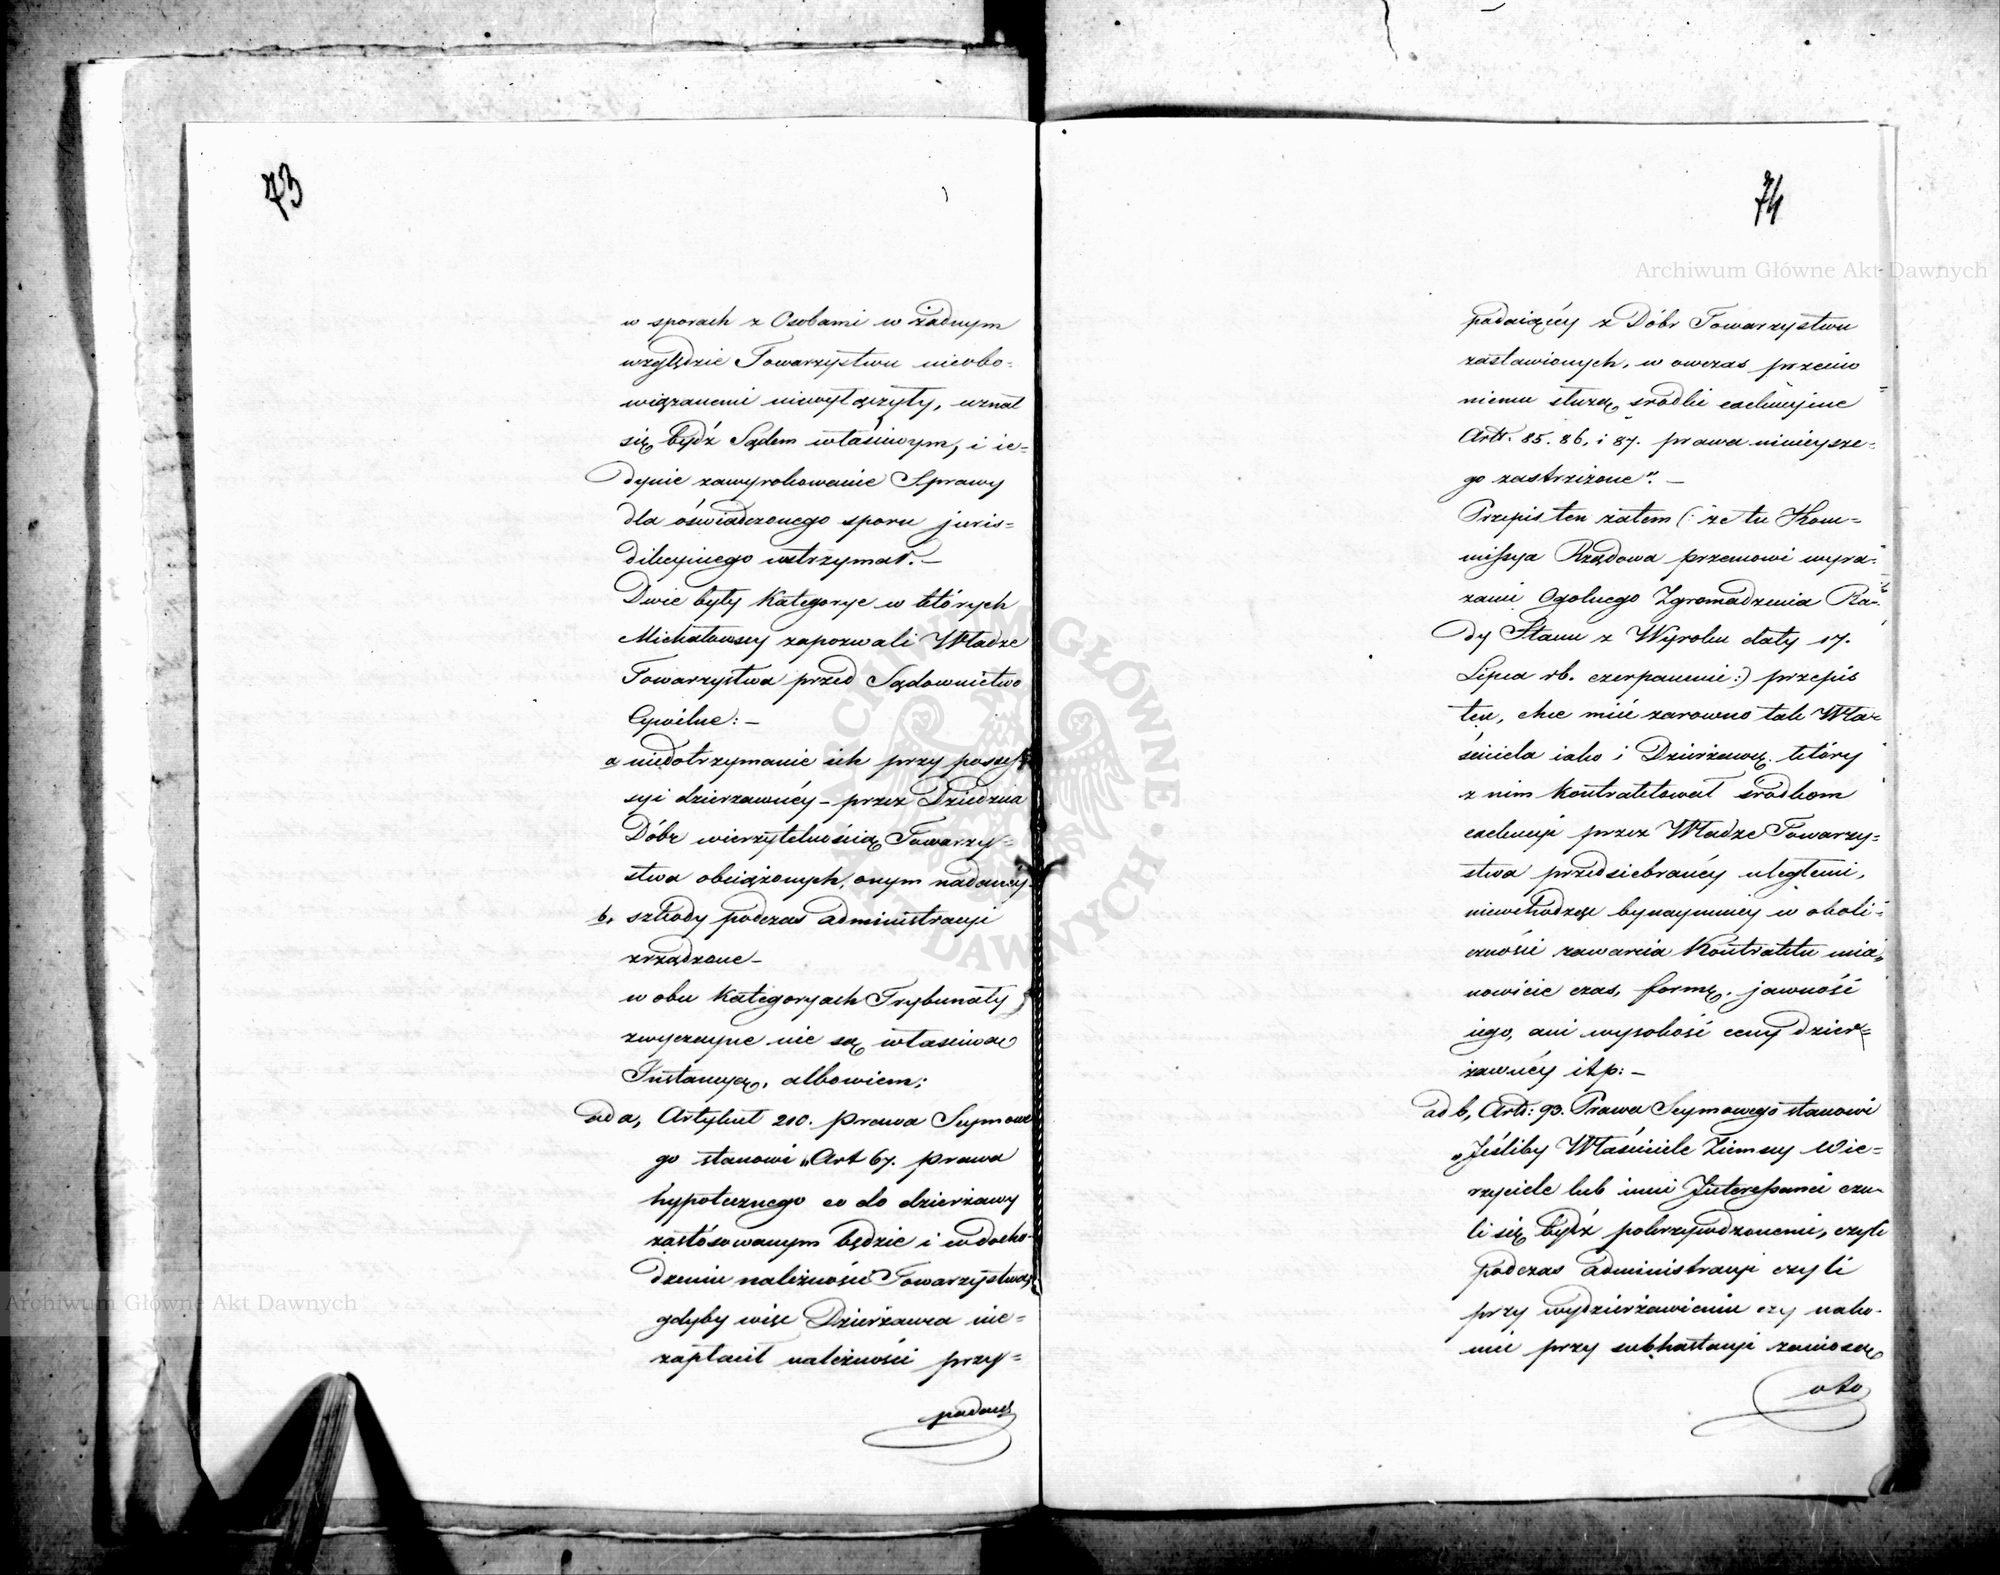 73
w sporach z Osobami w żadnym
względzie Towarzystwu nieobo-
wiązanemi niewytączyły, uznał
się bydź Sądem właściwym, i ie-
dynie zawyrokowanie Sprawy
dla oświadczonego sporu juris-
dikcyinego wstrzymał. —
Dwie były Kategorye w których
Michałowscy zapozwali Władze
Towarzystwa przed Sądownictwo
Cywilne: —
a niedotrzymanie ich przy posses-
syi dzierzawnéy – przez Dziedzica
Dóbr wierzytelnością Towarzy-
stwa obciążonych, onym nadanéy
b, szkody podczas administracyi
zrządzone –
w obu Kategoryach Trybunały
zwyczayne nie są właściwą
Instancyą, albowiem;
ad a, Artykuł 210. prawa Seymowe
go stanowi „Art 67. prawa
hypotecznego co do dzierżawy
zastósowanym będzie i w docho-
dzeniu należności Towarzystwa,
gdyby więc Dzierżawca nie-
zapłacił należności przy-
padaią
74
padaiącéy z Dóbr Towarzystwu
zastawionych, w owczas przeciw
niemu służą srodki exekucyine
Artt. 85. 86, i 87. prawa ninieysze-
go zastrzeżone". —
Przepis ten zatem (: że tu Kom-
missya Rządowa przemowi wyra-
zami Ogolnego Zgromadzenia Ra-
dy Stanu z Wyroku daty 17.
Lipca rb. czerpanemi:) przepis
ten, chce mieć zarowno tak Wła-
ściciela iako i Dzierżawcę. który
z nim kontraktował srodkom
exekucyi przez Władze Towarzy-
stwa przedsiebranéy uległemi,
niewchodząc bynaymniey w okoli-
czności zawarcia Kontraktu mia-
nowicie czas, formę, jawność
iego, ani wysokość ceny dzier-
żawnéy itp: —
ad b, Artt: 93. Prawa Seymowego stanowi
„Jeśliby Właściciele Ziemscy Wie-
rzyciele lub inni Interessanci czu-
li się bydź pokrzywdzonemi, czyli
podczas administracyi czyli
przy wydzierżawieniu czy nako-
niec przy subhastacyi zaniosą
oto
Archiwum Główne Akt Dawnych
Archiwum Główne Akt Dawnych
ARCHIWUM GŁÓWNE AKT DAWNYCH